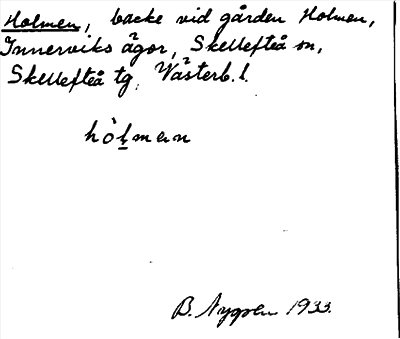 Holmen, backe vid gården Holmen,
Innerviks ägor, Skellefteå sn,
Skellefteå tg, Västerb. l.
hòl̲mɐn
B. Nygren 1933.